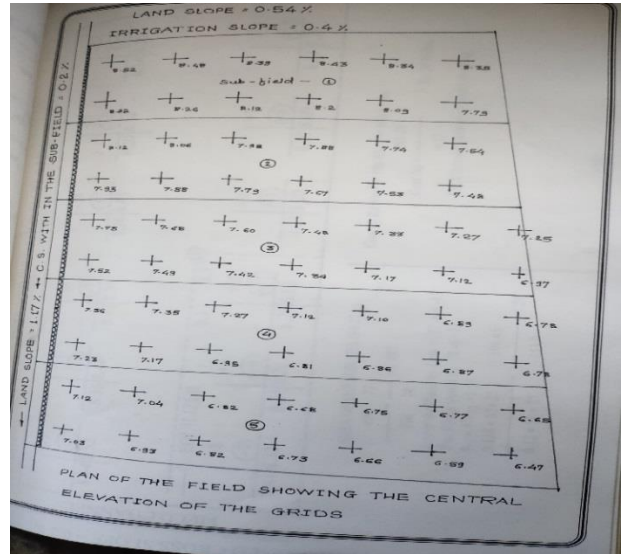 LAND SLOPE = 0.54 %
IRRIGATION SLOPE = 0.4 %
← LAND SLOPE = 1.17 % ← C.S. WITH IN THE SUB-FIELD = 0.2 %
8.48 8.43 8.34
Sub-field - ①
8.26 8.12 8.2 8.09 7.79
8.12 8.06 7.88 7.74 7.64
②
7.95 7.88 7.79 7.67 7.53 7.48
7.75 7.68 7.60 7.48 7.33 7.27 7.25
③
7.52 7.49 7.42 7.34 7.17 7.12 6.97
7.35 7.27 7.12 7.10 6.89 6.78
④
7.23 7.17 6.95 6.81 6.86 6.87 6.78
7.12 7.04 6.82 6.68 6.75 6.77 6.65
⑤
7.03 6.93 6.82 6.73 6.66 6.59 6.47
PLAN OF THE FIELD SHOWING THE CENTRAL
ELEVATION OF THE GRIDS